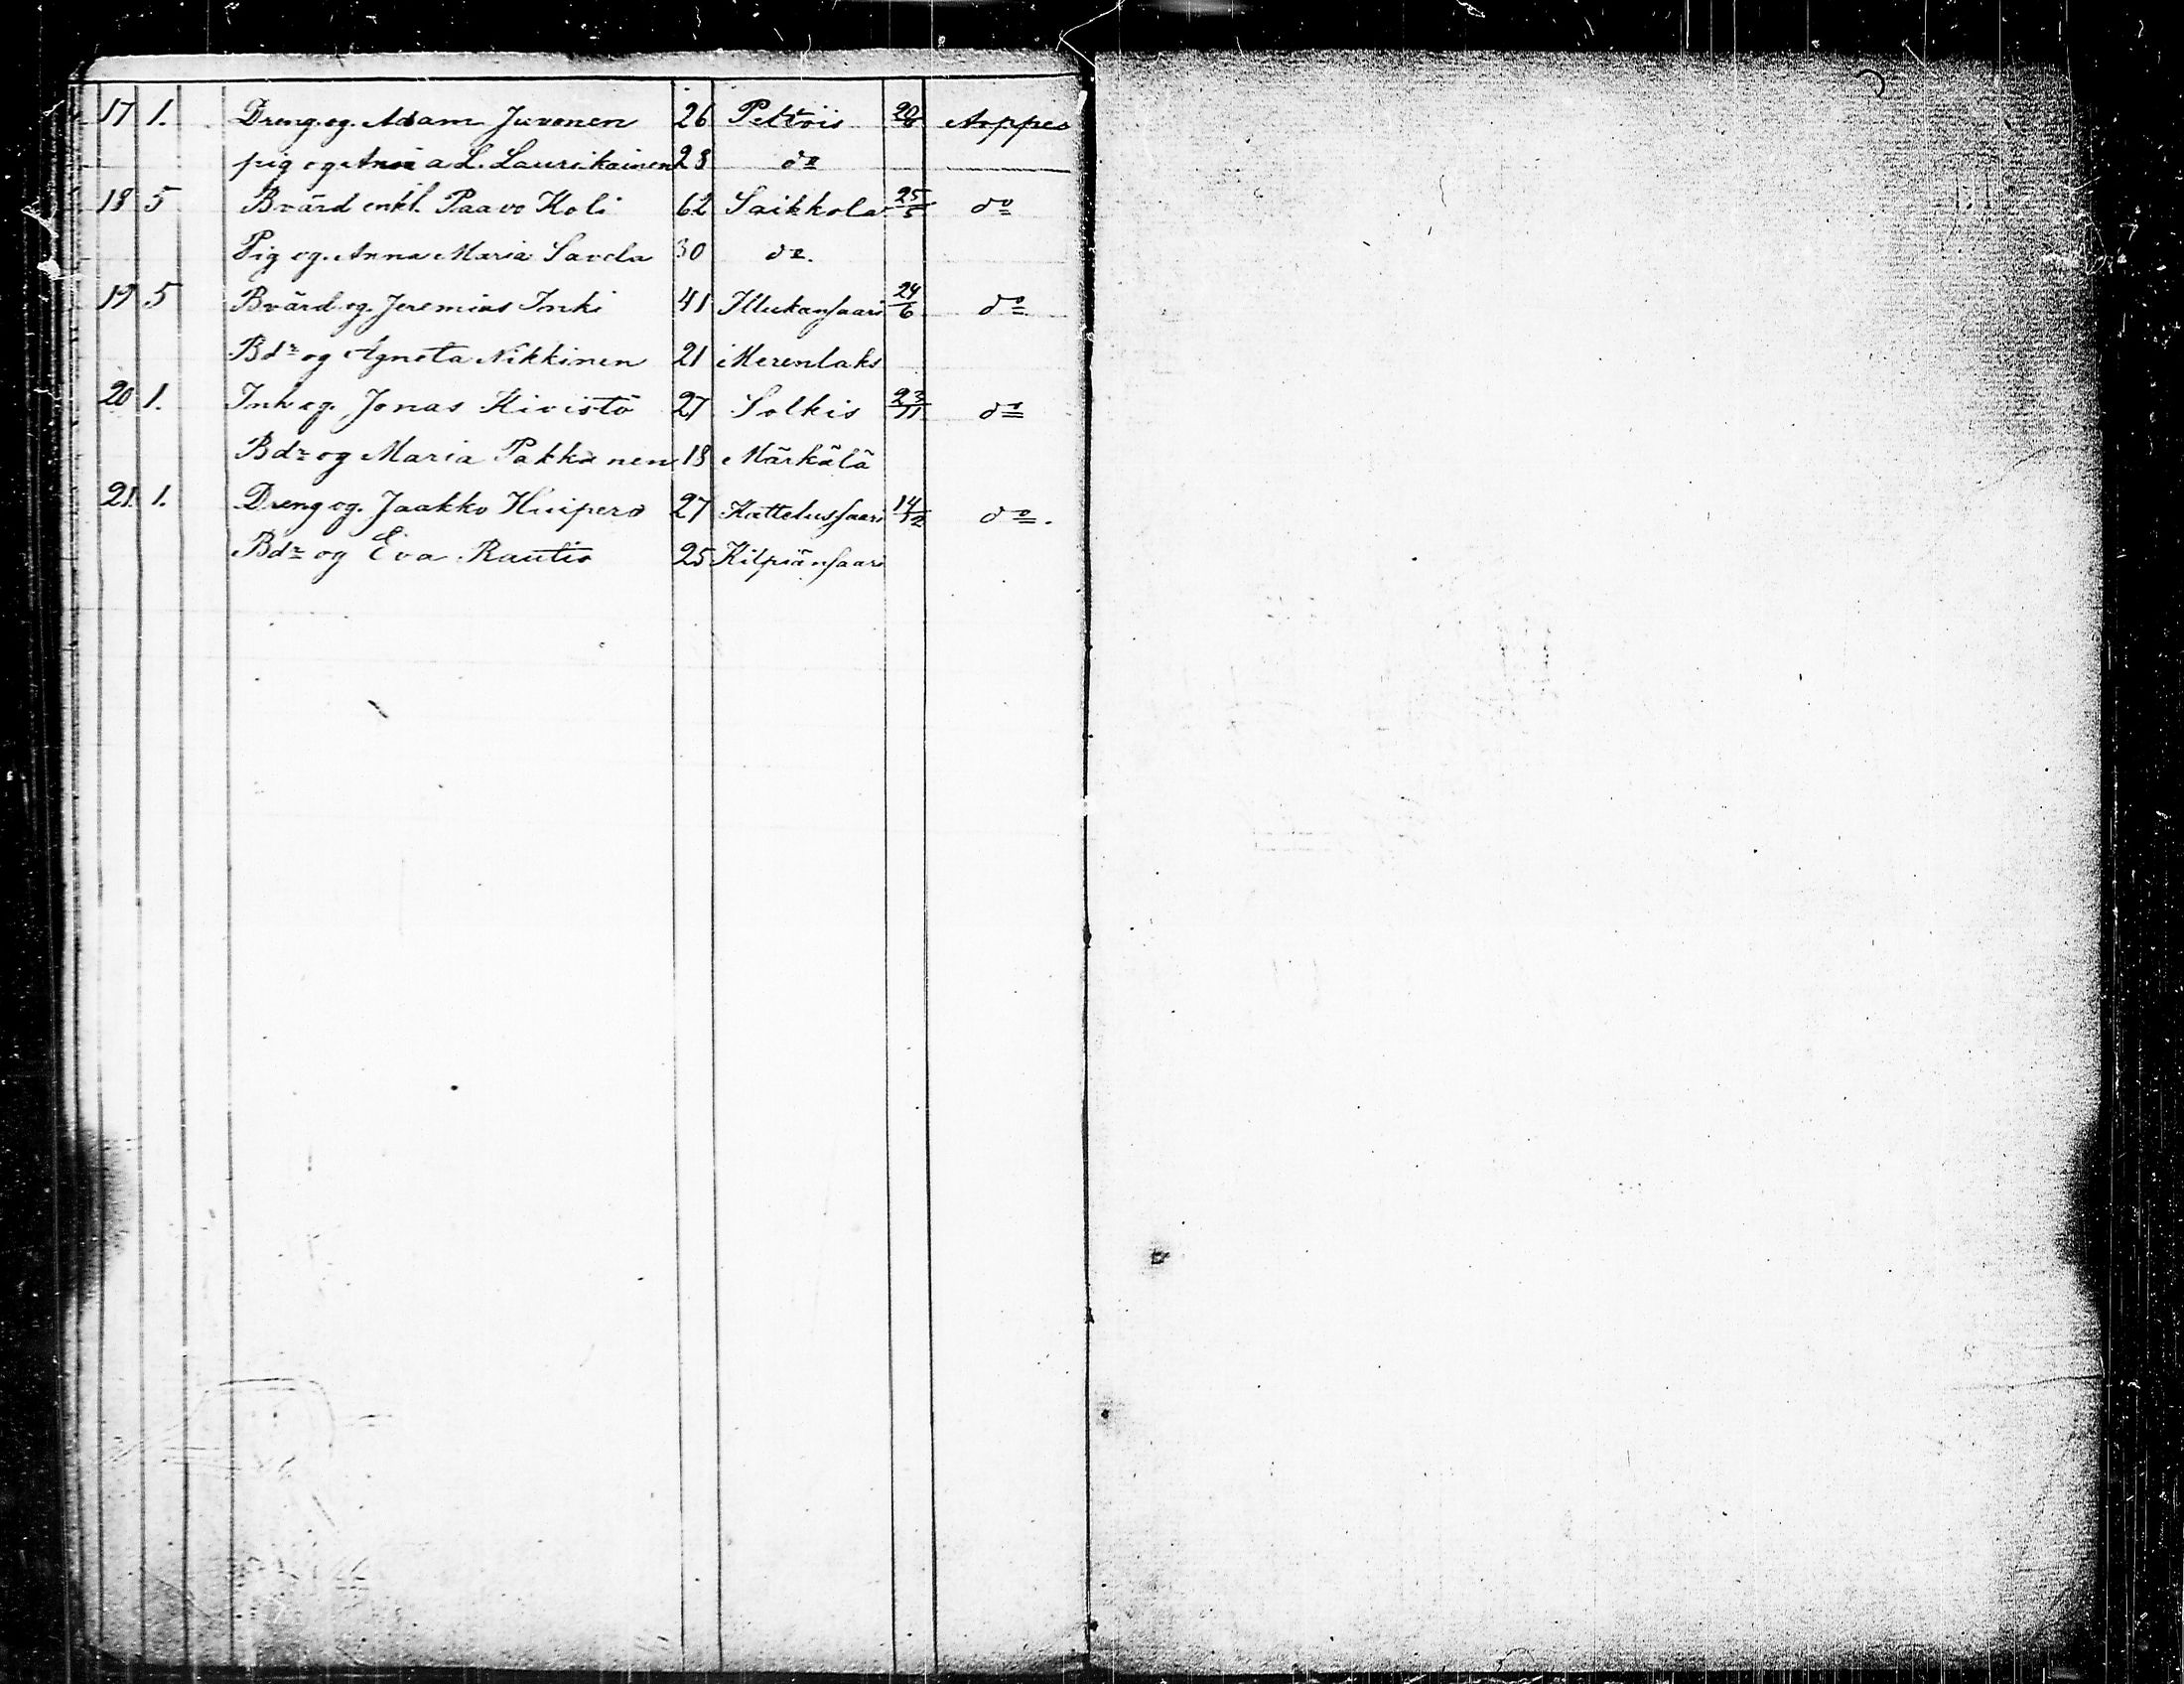 17 1. Dreng. og. Adam Juvonen 26 Peltois 20/8 Arppes
pig og Anna L. Laurikainen 28 do
18 5 Bvärd enkl. Paavo Koli 62 Saikkola 25/5 do
Pig og. Anna Maria Savela 30 do.
19 5 Bvärd. og. Jeremias Inki 41 Illukansaari 24/6 do
Bdr og Agneta Nikkinen 21 Merenlaks
20 1. Inh og. Jonas Kivistö 27 Solkis 23/11 do
Bdr og Maria Pakkanen 18 Märkälä
21. 1. Dreng og. Jaakko Huipero 27 Kattelussaari 14/12 do.
Bdr og Eva Rautio 25 Kilpiänsaari